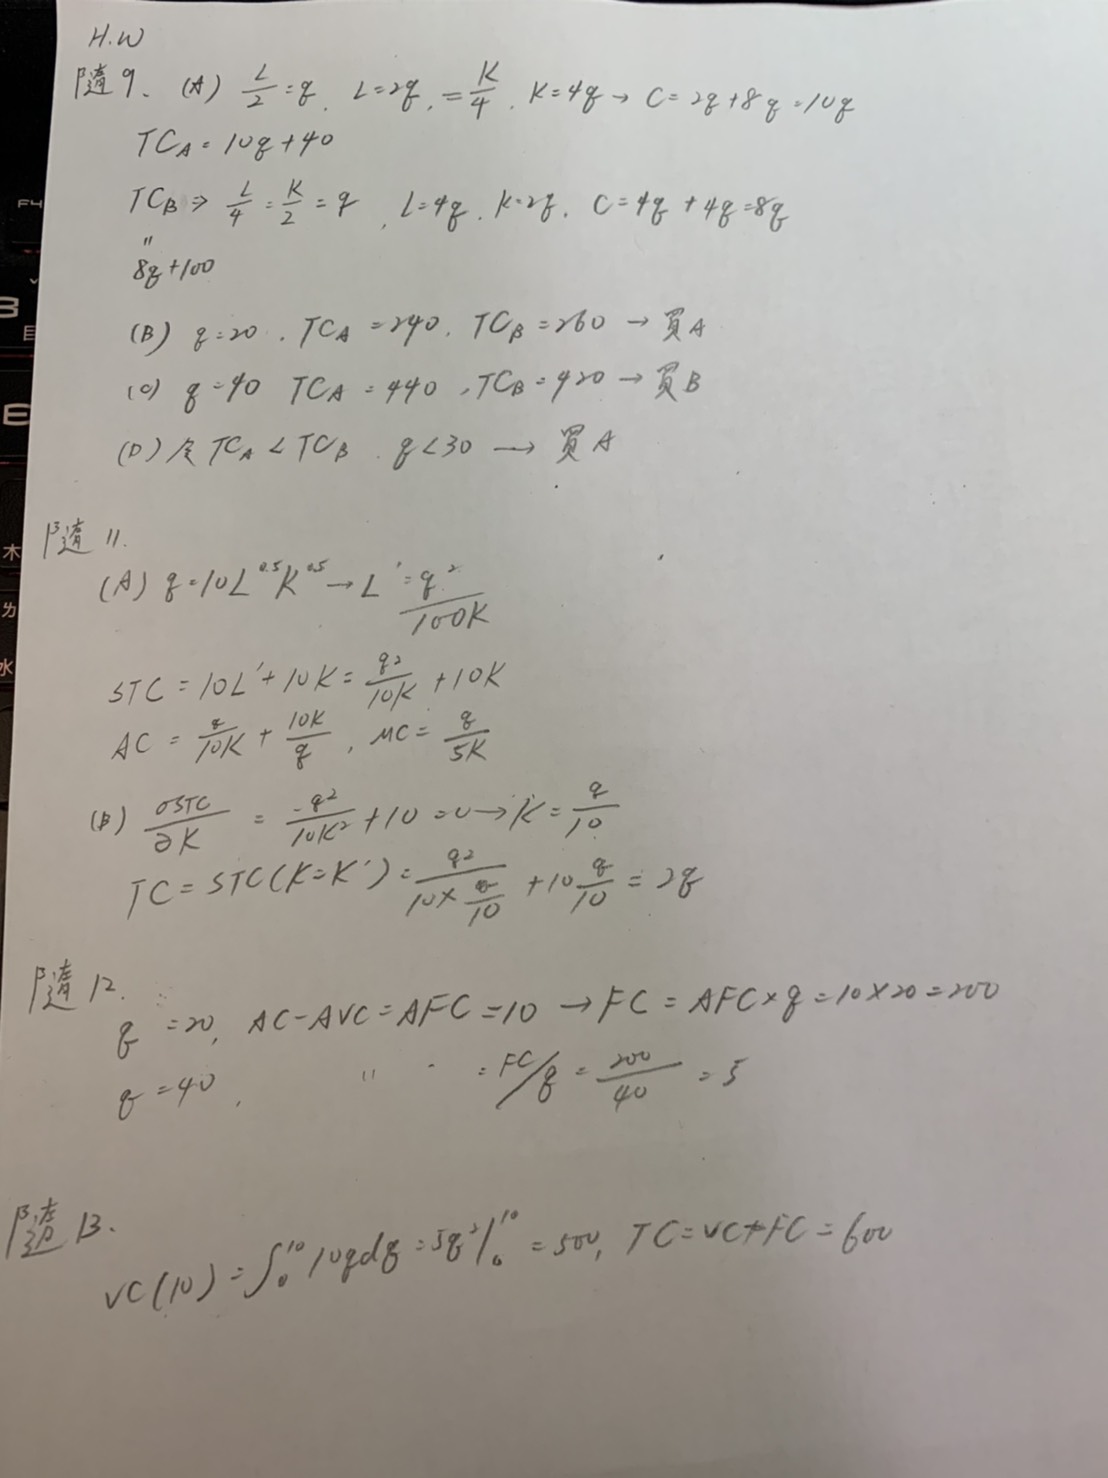 H.W
隨9、 (A) L/2 = q, L=2q, = K/4, K=4q → C=2q+8q=10q
TC_A = 10q+40
TC_B ⇒ L/4 = K/2 = q, L=4q, K=2q, C=4q+4q=8q
"
8q+100
(B) q=20, TC_A=240, TC_B=260 → 買A
(C) q=40 TC_A=440, TC_B=420 → 買B
(D) 令 TC_A < TC_B q<30 → 買A
隨11.
(A) q=10L^0.5 K^0.5 → L' = q²/100K
STC = 10L'+10K = q²/10K + 10K
AC = q/10K + 10K/q, MC = q/5K
(B) ∂STC/∂K = -q²/10K² + 10 = 0 → K' = q/10
TC = STC(K=K') = q²/(10×q/10) + 10 q/10 = 2q
隨12.
q=20, AC-AVC=AFC=10 → FC=AFC×q=10×20=200
q=40, " = FC/q = 200/40 = 5
隨13.
VC(10) = ∫₀¹⁰ 10qdq = 5q²|₀¹⁰ = 500, TC=VC+FC=600
F4
3
目
E
木
ㄌ
水